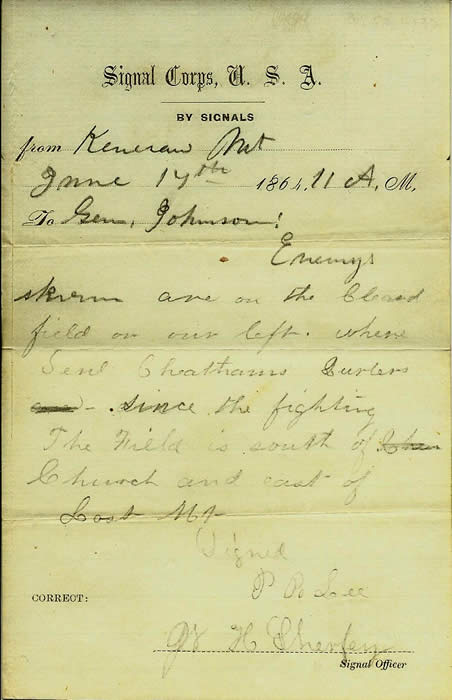 Signal Corps, U. S. A.
BY SIGNALS
from Kenesaw Mt
June 17th 1864. 11 A, M.
To Gen, Johnson!
Enemys
are on the Cleard
field on our left. where
Genl Cheathams
since the fighting
The Field is south of
Church and east of
Lost Mt
Signed
P B Lee
CORRECT:
Signal Officer